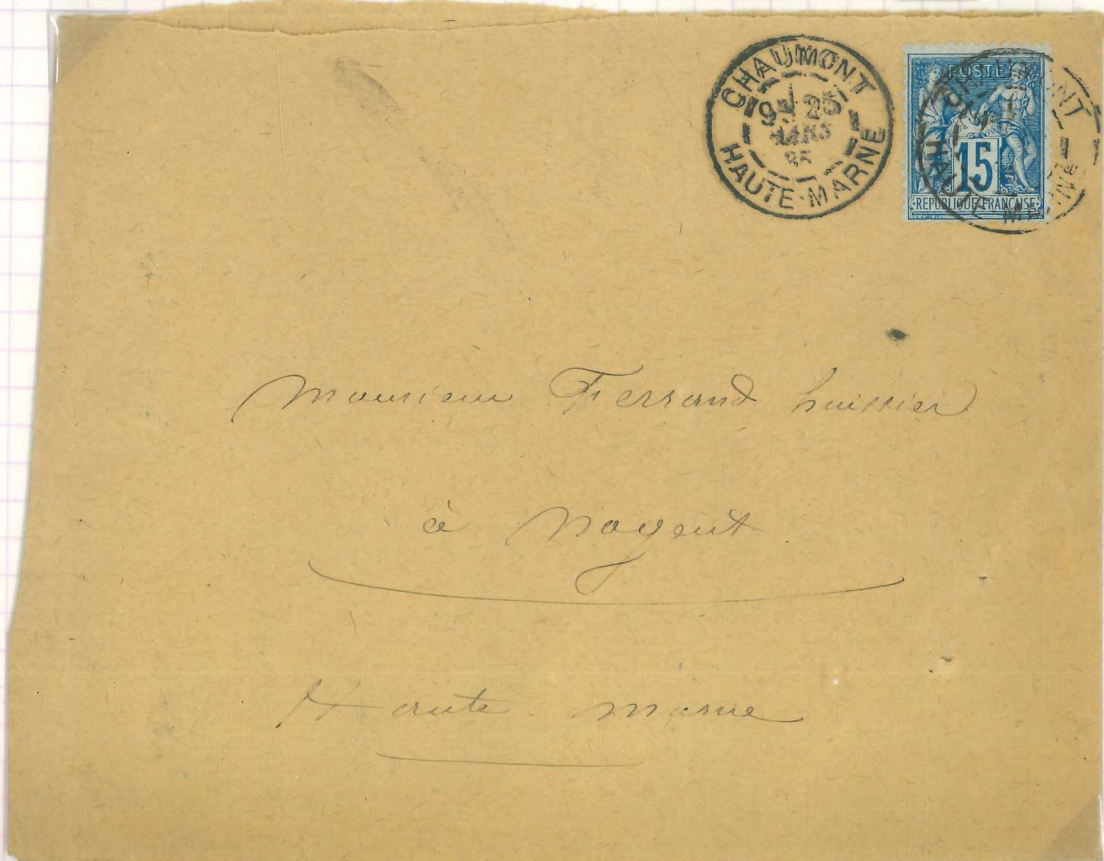 CHAUMONT
25
MARS
HAUTE-MARNE
POSTE
15
REPUBLIQUE FRANÇAISE
CHAUMONT
HAUTE MARNE
Monsieur Ferrand huissier
à Nogent
Haute Marne